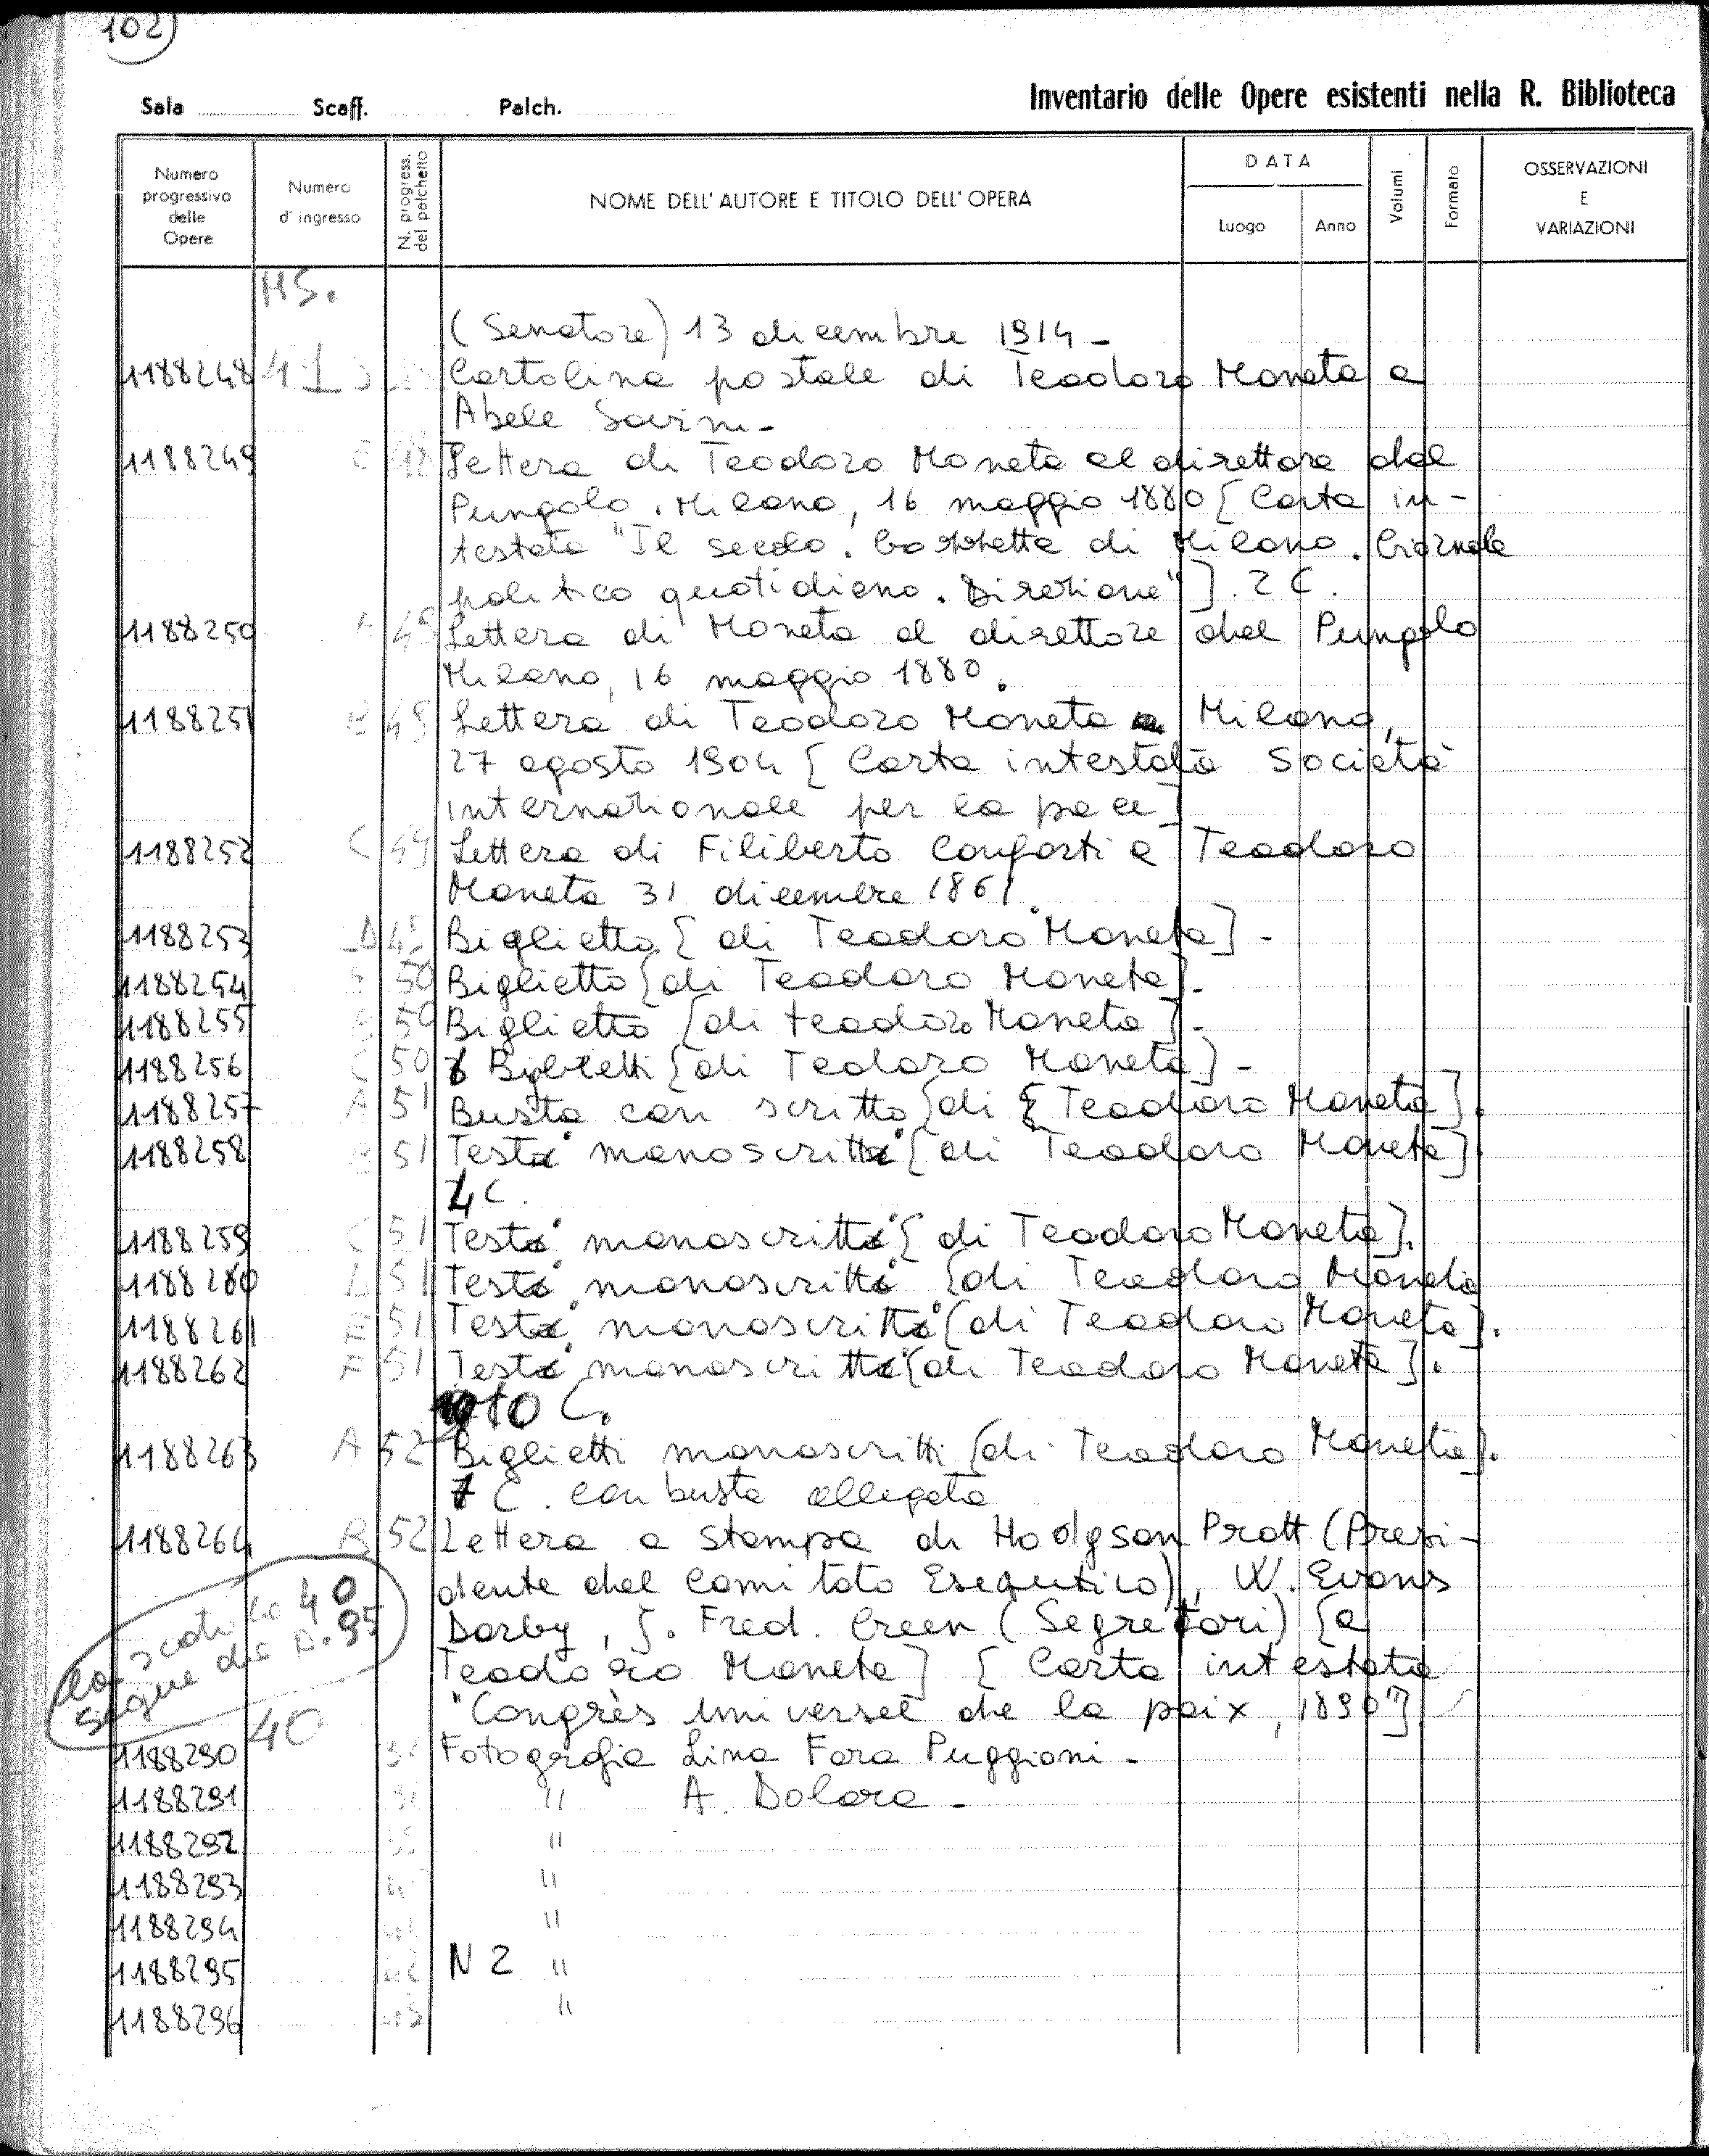 102)
Sala Scaff. Palch. Inventario delle Opere esistenti nella R. Biblioteca
Numero progressivo delle Opere
Numero d'ingresso
N. progress. del palchetto
NOME DELL'AUTORE E TITOLO DELL'OPERA
DATA
Luogo Anno
Volumi
Formato
OSSERVAZIONI E VARIAZIONI
MS.
(Senatore) 13 dicembre 1914 -
1188248 41 Cartolina postale di Teodoro Moneta a
Abele Savini -
1188249 Lettera di Teodoro Moneta al direttore del
Pungolo. Milano, 16 maggio 1880 [Carta in-
testata "Il secolo. Gazzetta di Milano. Giornale
politico quotidiano. Direzione"]. 2 C.
1188250 Lettera di Moneta al direttore del Pungolo
Milano, 16 maggio 1880.
1188251 B Lettera di Teodoro Moneta Milano,
27 agosto 1904 [Carta intestata Società
internazionale per la pace]
1188252 C 49 Lettera di Filiberto Conforti a Teodoro
Moneta 31 dicembre 1861.
1188253 D Biglietto [di Teodoro Moneta] -
1188254 50 Biglietto [di Teodoro Moneta] -
1188255 50 Biglietto [di teodoro Moneta] -
1188256 C 50 6 Biglietti [di Teodoro Moneta] -
1188257 A 51 Busta con scritto [di [Teodoro Moneta].
1188258 B 51 Testo manoscritto [di Teodoro Moneta]
4 C.
1188259 C 51 Testo manoscritto [di Teodoro Moneta].
1188260 D 51 Testo manoscritto [di Teodoro Moneta
1188261 E 51 Testo manoscritto [di Teodoro Moneta].
1188262 F 51 Testo manoscritto [di Teodoro Moneta].
10 C.
1188263 A 52 Biglietti manoscritti [di Teodoro Moneta].
7 C. con busta allegata
1188264 B 52 Lettera a stampa di Hodgson Pratt (Presi-
dente del Comitato Esecutivo), W. Evans
Darby, J. Fred. Green (Segretari) [a
Teodoro Moneta] [Carta intestata
"Congrès universel de la paix, 1890"]
La scatola 40
segue da p. 95
40
1188290 Fotografia Lina Fara Puggioni -
1188291 " A. Dolara -
1188292 "
1188293 "
1188294 "
1188295 N 2 "
1188296 "